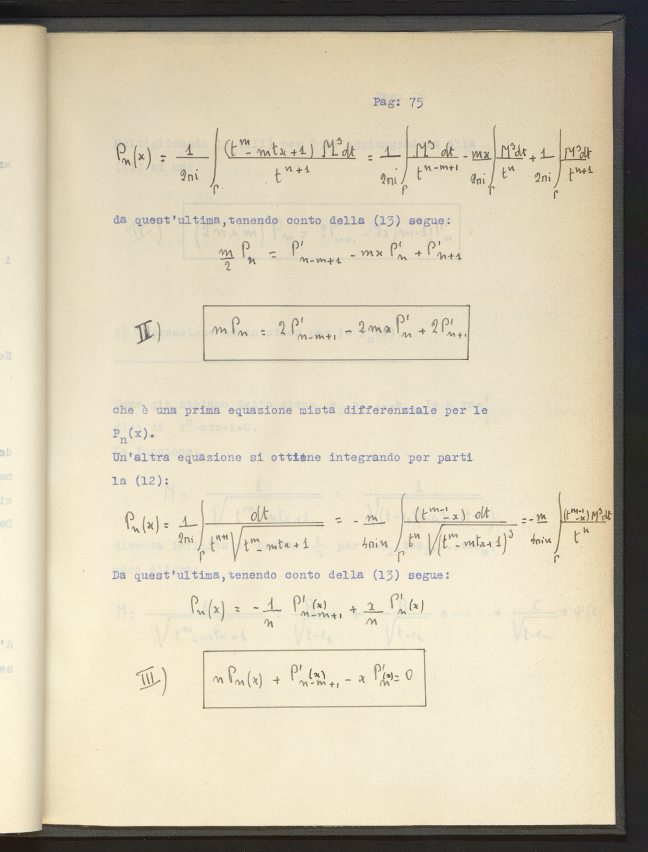 Pag: 75
Pₙ(x) = 1/2πi ∫_Γ (tᵐ - mtx + 1) M³dt / tⁿ⁺¹ = 1/2πi ∫_Γ M³ dt / tⁿ⁻ᵐ⁺¹ - mx/2πi ∫_Γ M³dt / tⁿ + 1/2πi ∫_Γ M³dt / tⁿ⁺¹
da quest'ultima,tenendo conto della (13) segue:
m/2 Pₙ = P'ₙ₋ₘ₊₁ - mx P'ₙ + P'ₙ₊₁
II) mPₙ = 2P'ₙ₋ₘ₊₁ - 2mx P'ₙ + 2P'ₙ₊₁
che è una prima equazione mista differenziale per le
Pₙ(x).
Un'altra equazione si ottiene integrando per parti
la (12):
Pₙ(x) = 1/2πi ∫_Γ dt / tⁿ⁺¹ √(tᵐ - mtx + 1) = - m/4πin ∫_Γ (tᵐ⁻¹ - x) dt / tⁿ √(tᵐ - mtx + 1)³ = - m/4πin ∫_Γ (tᵐ⁻¹ - x) M³dt / tⁿ
Da quest'ultima,tenendo conto della (13) segue:
Pₙ(x) = - 1/n P'ₙ₋ₘ₊₁(x) + x/n P'ₙ(x)
III) nPₙ(x) + P'ₙ₋ₘ₊₁(x) - x P'ₙ(x) = 0